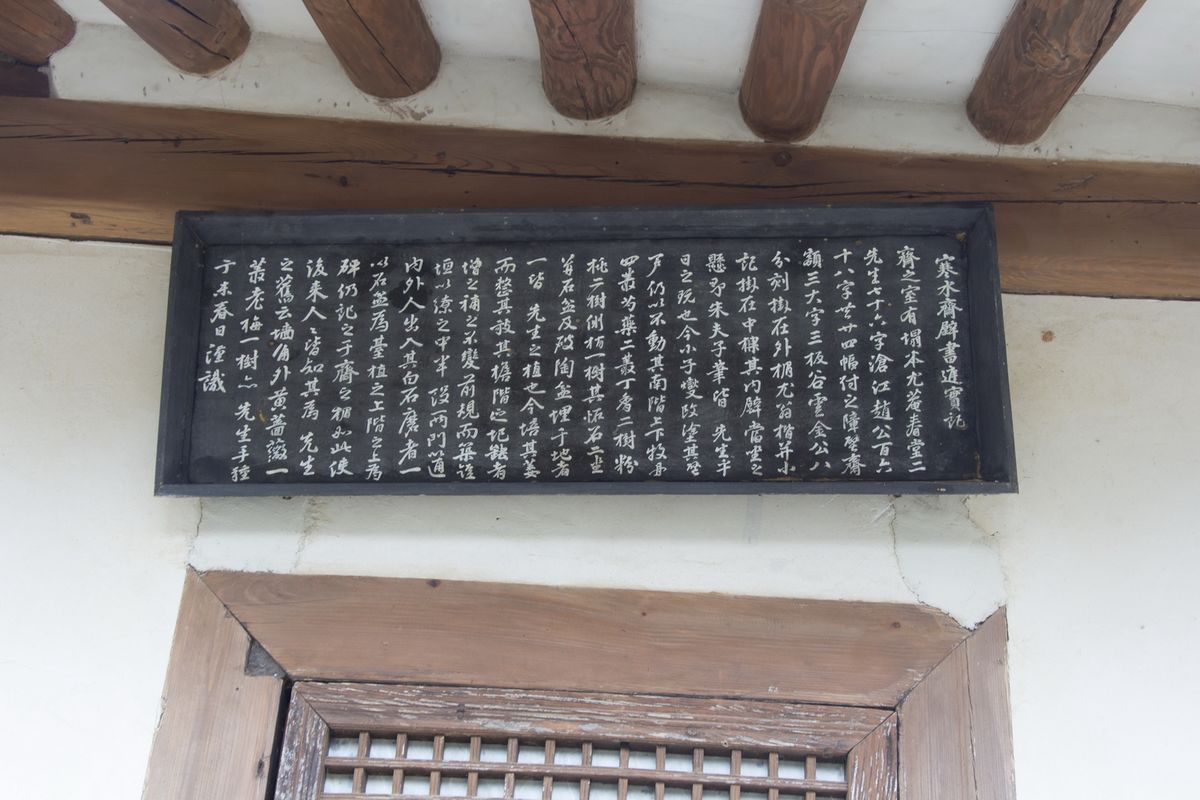 寒水齋壁書遺實記
齋之室有塌本尤菴春堂二
先生一十六字滄江趙公百六
十八字共廿四幅付之障壁齋
額三大字三板谷雲金公八
分刻掛在外楣尤翁楷并小
記掛在中樑其內壁當坐之
懸即朱夫子筆皆 先生平
日之玩也今小子變改塗其壁
戶仍以不動其南階上下牧丹
四叢芍藥二叢丁香二樹粉
桃二樹側栢一樹其恠石二坐
若石盆及改陶盆埋于地者
一皆 先生之植也今培其萎
而整其敧其檐階之圮缺者
增之補之不變前規而築短
垣以繚之中半設一兩門以通
內外人出入其白石磨者一
以石盆為臺植之上階之上為
碑仍記之于齋之楣如此使
後来人人皆知其為 先生
之舊云墻角外黃薔薇一
叢老梅一樹亦 先生手種
于未春日謹識